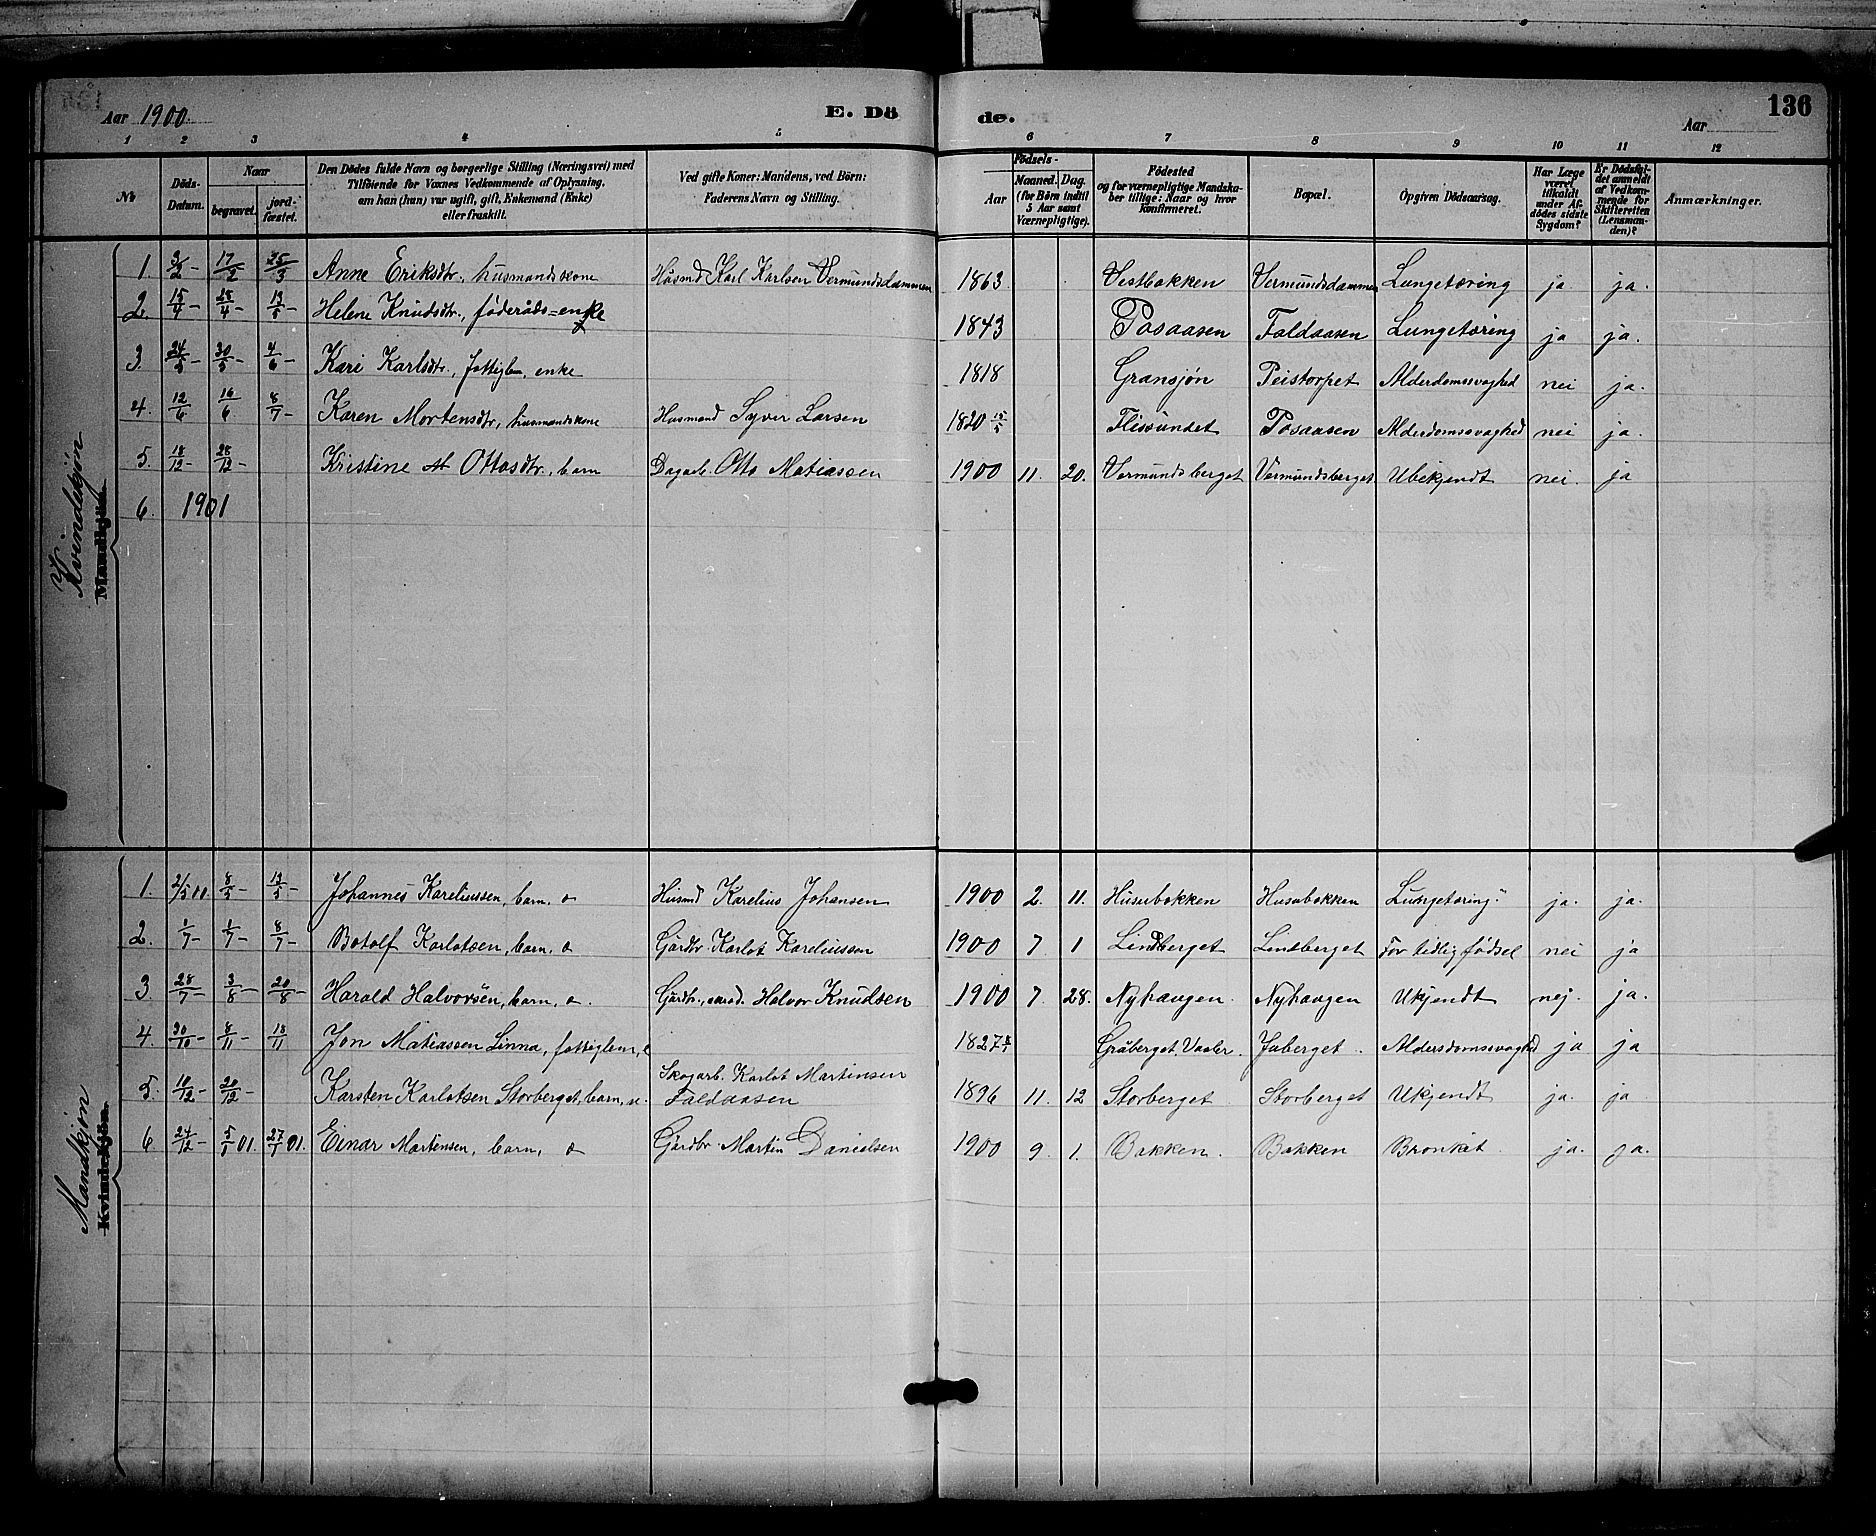 Aar 1900. E. Dö de. Aar 136
1 2 3 4 5 6 7 8 9 10 11 12
No
Döds-Datum.
Naar
begravet.
jord-fæstet.
Den Dødes fulde Navn og borgerlige Stilling (Næringsvei) med
Tilföiende for Voxnes Vedkommende af Oplysning,
om han (hun) var ugift, gift, Enkemand (Enke)
eller fraskilt.
Ved gifte Koner: Mandens, ved Börn:
Faderens Navn og Stilling.
Födsels-
Aar
Maaned. Dag.
(for Börn indtil
5 Aar samt
Værnepligtige).
Födested
og for værnepligtige Mandska-
ber tillige: Naar og hvor
konfirmeret.
Bopæl.
Opgiven Dödsaarsag.
Har Læge
været
tilkaldt
under Af-
dödes sidste
Sygdom?
Er Dödsfal-
det anmeldt
af Vedkom-
mende for
Skifteretten
(Lensman-
den)?
Anmærkninger.
Kvindekjön
Mandkjön.
1 3/2 – 17/2 25/3 Anne Eriksdtr., husmandskone Husmd Karl Karlsen Vermundsdammen 1863 Vestbakken Vermundsdammen Lungetæring ja ja.
2. 15/4 – 28/4 – 13/5 – Helene Knudsdtr., føderåds=enke 1843 Posaasen Faldaasen Lungetæring ja ja.
3. 24/5 – 30/5 4/6 – Kari Karlsdtr., fattiglem, enke 1818 Gransjøn Peistorpet Alderdomssvaghed nei ja.
4. 12/6 16/6 8/7 – Karen Mortensdtr, husmandskone Husmand Syver Larsen 1820 15/5 Flissundet Posaasen Alderdomssvaghed nei ja.
5. 18/12 – 28/12 Kristine M Ottosdtr., barn Dagarb. Otto Matiassen 1900 11. 20. Vermundsberget Vermundsberget Ubekjendt nei. ja
6. 1901
Mandkjön
Kvindekjön.
1. 2/5 00 8/5 – 13/5 Johannes Kareliussen, barn, Husmd Karelius Johansen 1900 2. 11. Husubakken Husubakken Lungetæring ja. ja.
2. 1/7 – 1/7 – 8/7 – Botolf Karlotsen, barn, Gårdbr. Karlot Kareliussen 1900 7 1 Lindberget Lindberget For tidlig fødsel nei ja
3 28/7 – 3/8 – 20/8 – Harald Halvorsen, barn, Gårdbr., Halvor Knudsen 1900 7. 28. Nyhaugen. Nyhaugen Ukjendt nej. ja.
4. 30/10 – 8/11 – 18/11 Jon Matiassen Linna, fattiglem, 1827 Gråberget, Vaaler. Juberget. Aldersdomssvaghed ja ja
5. 10/12 – 20/12 – Karsten Karlotsen Storberget, barn, u. Skogarb. Karlot Martinsen
Faldaasen 1896 11. 12 Storberget Storberget Ukjendt ja. ja
6. 24/12 – 5/1 01. 27/1 01. Einar Martinsen, barn, Gårdbr Martin Danielsen 1900 9. 1. Bakken. Bakken Bronkit. ja. ja.